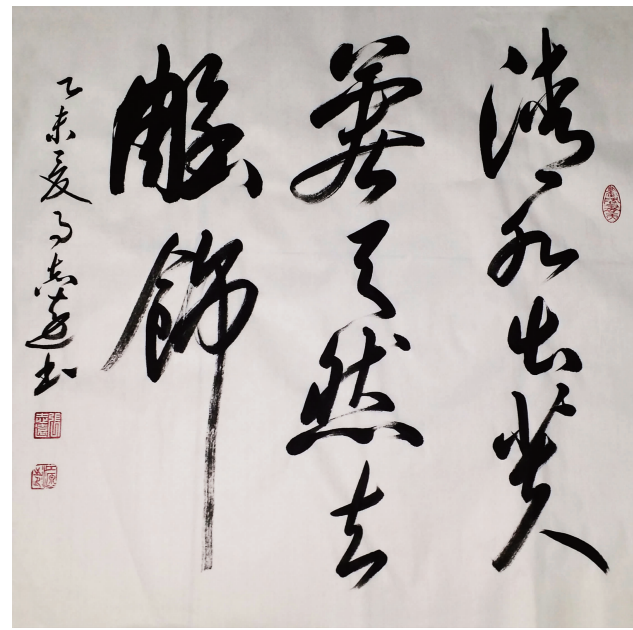 清水出芙
蓉天然去
雕飾
乙未夏月志遠书